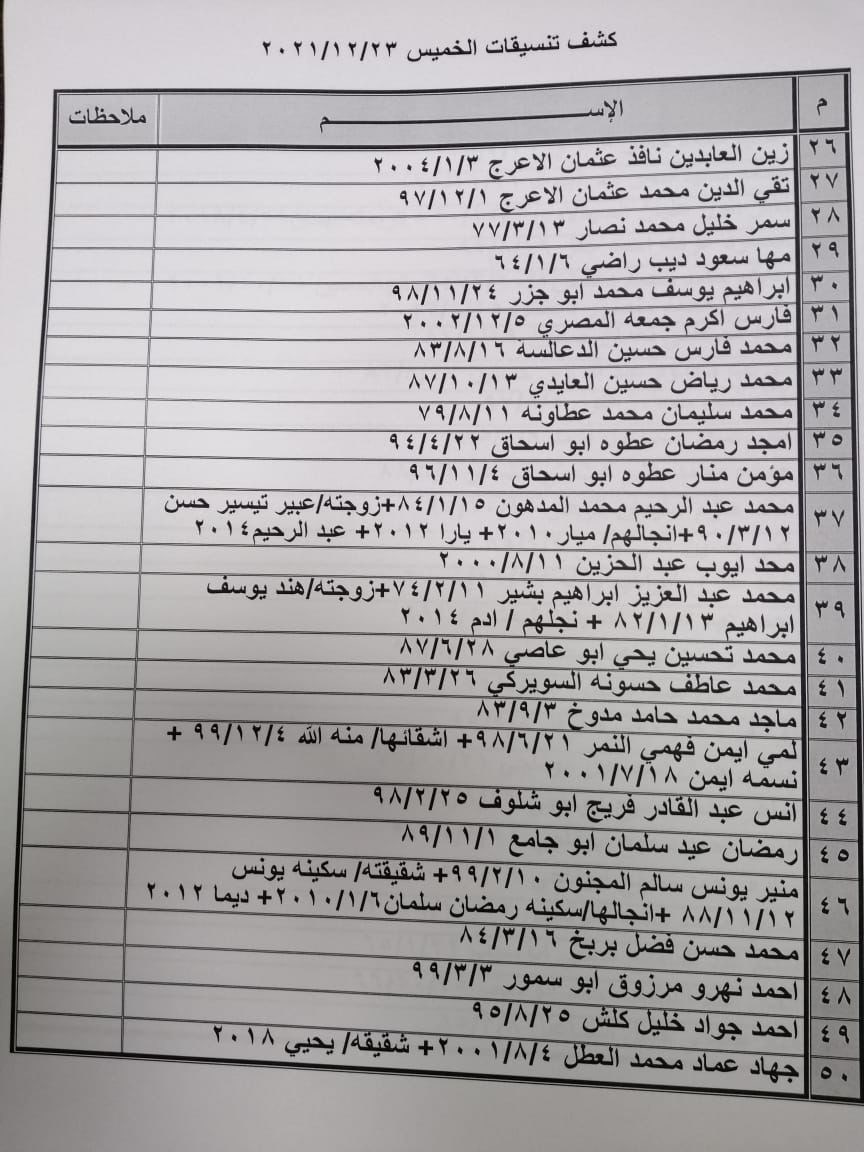 كشف تنسيقات الخميس ٢٠٢١/١٢/٢٣
م الإســــــــــــــــــــم ملاحظات
٢٦ زين العابدين نافذ عثمان الاعرج ٢٠٠٤/١/٣
٢٧ تقي الدين محمد عثمان الاعرج ٩٧/١٢/١
٢٨ سمر خليل محمد نصار ٧٧/٣/١٣
٢٩ مها سعود ديب راضي ٦٤/١/٦
٣٠ ابراهيم يوسف محمد ابو جزر ٩٨/١١/٢٤
٣١ فارس اكرم جمعه المصري ٢٠٠٢/١٢/٥
٣٢ محمد فارس حسين الدعالسة ٨٣/٨/١٦
٣٣ محمد رياض حسين العايدي ٨٧/١٠/١٣
٣٤ محمد سليمان محمد عطاونه ٧٩/٨/١١
٣٥ امجد رمضان عطوه ابو اسحاق ٩٤/٤/٢٢
٣٦ مؤمن منار عطوه ابو اسحاق ٩٦/١١/٤
٣٧ محمد عبد الرحيم محمد المدهون ٨٤/١/١٥+زوجته/عبير تيسير حسن
٩٠/٣/١٢+انجالهم/ ميار٢٠١٠+ يارا ٢٠١٢+ عبد الرحيم٢٠١٤
٣٨ محد ايوب عبد الحزين ٢٠٠٠/٨/١١
٣٩ محمد عبد العزيز ابراهيم بشير ٧٤/٢/١١+زوجته/هند يوسف
ابراهيم ٨٢/١/١٣ + نجلهم / ادم ٢٠١٤
٤٠ محمد تحسين يحي ابو عاصي ٨٧/٦/٢٨
٤١ محمد عاطف حسونه السويركي ٨٣/٣/٢٦
٤٢ ماجد محمد حامد مدوخ ٨٣/٩/٣
٤٣ لمي ايمن فهمي النمر ٩٨/٦/٢١+ اشقائها/ منه الله ٩٩/١٢/٤ +
نسمه ايمن ٢٠٠١/٧/١٨
٤٤ انس عبد القادر فريج ابو شلوف ٩٨/٢/٢٥
٤٥ رمضان عيد سلمان ابو جامع ٨٩/١١/١
٤٦ منير يونس سالم المجنون ٩٩/٢/١٠+ شقيقته/ سكينه يونس
٨٨/١١/١٢ +انجالها/سكينه رمضان سلمان٢٠١٠/١/٦+ ديما ٢٠١٢
٤٧ محمد حسن فضل بربخ ٨٤/٣/١٦
٤٨ احمد نهرو مرزوق ابو سمور ٩٩/٣/٣
٤٩ احمد جواد خليل كلش ٩٥/٨/٢٥
٥٠ جهاد عماد محمد العطل ٢٠٠١/٨/٤+ شقيقه/ يحيي ٢٠١٨